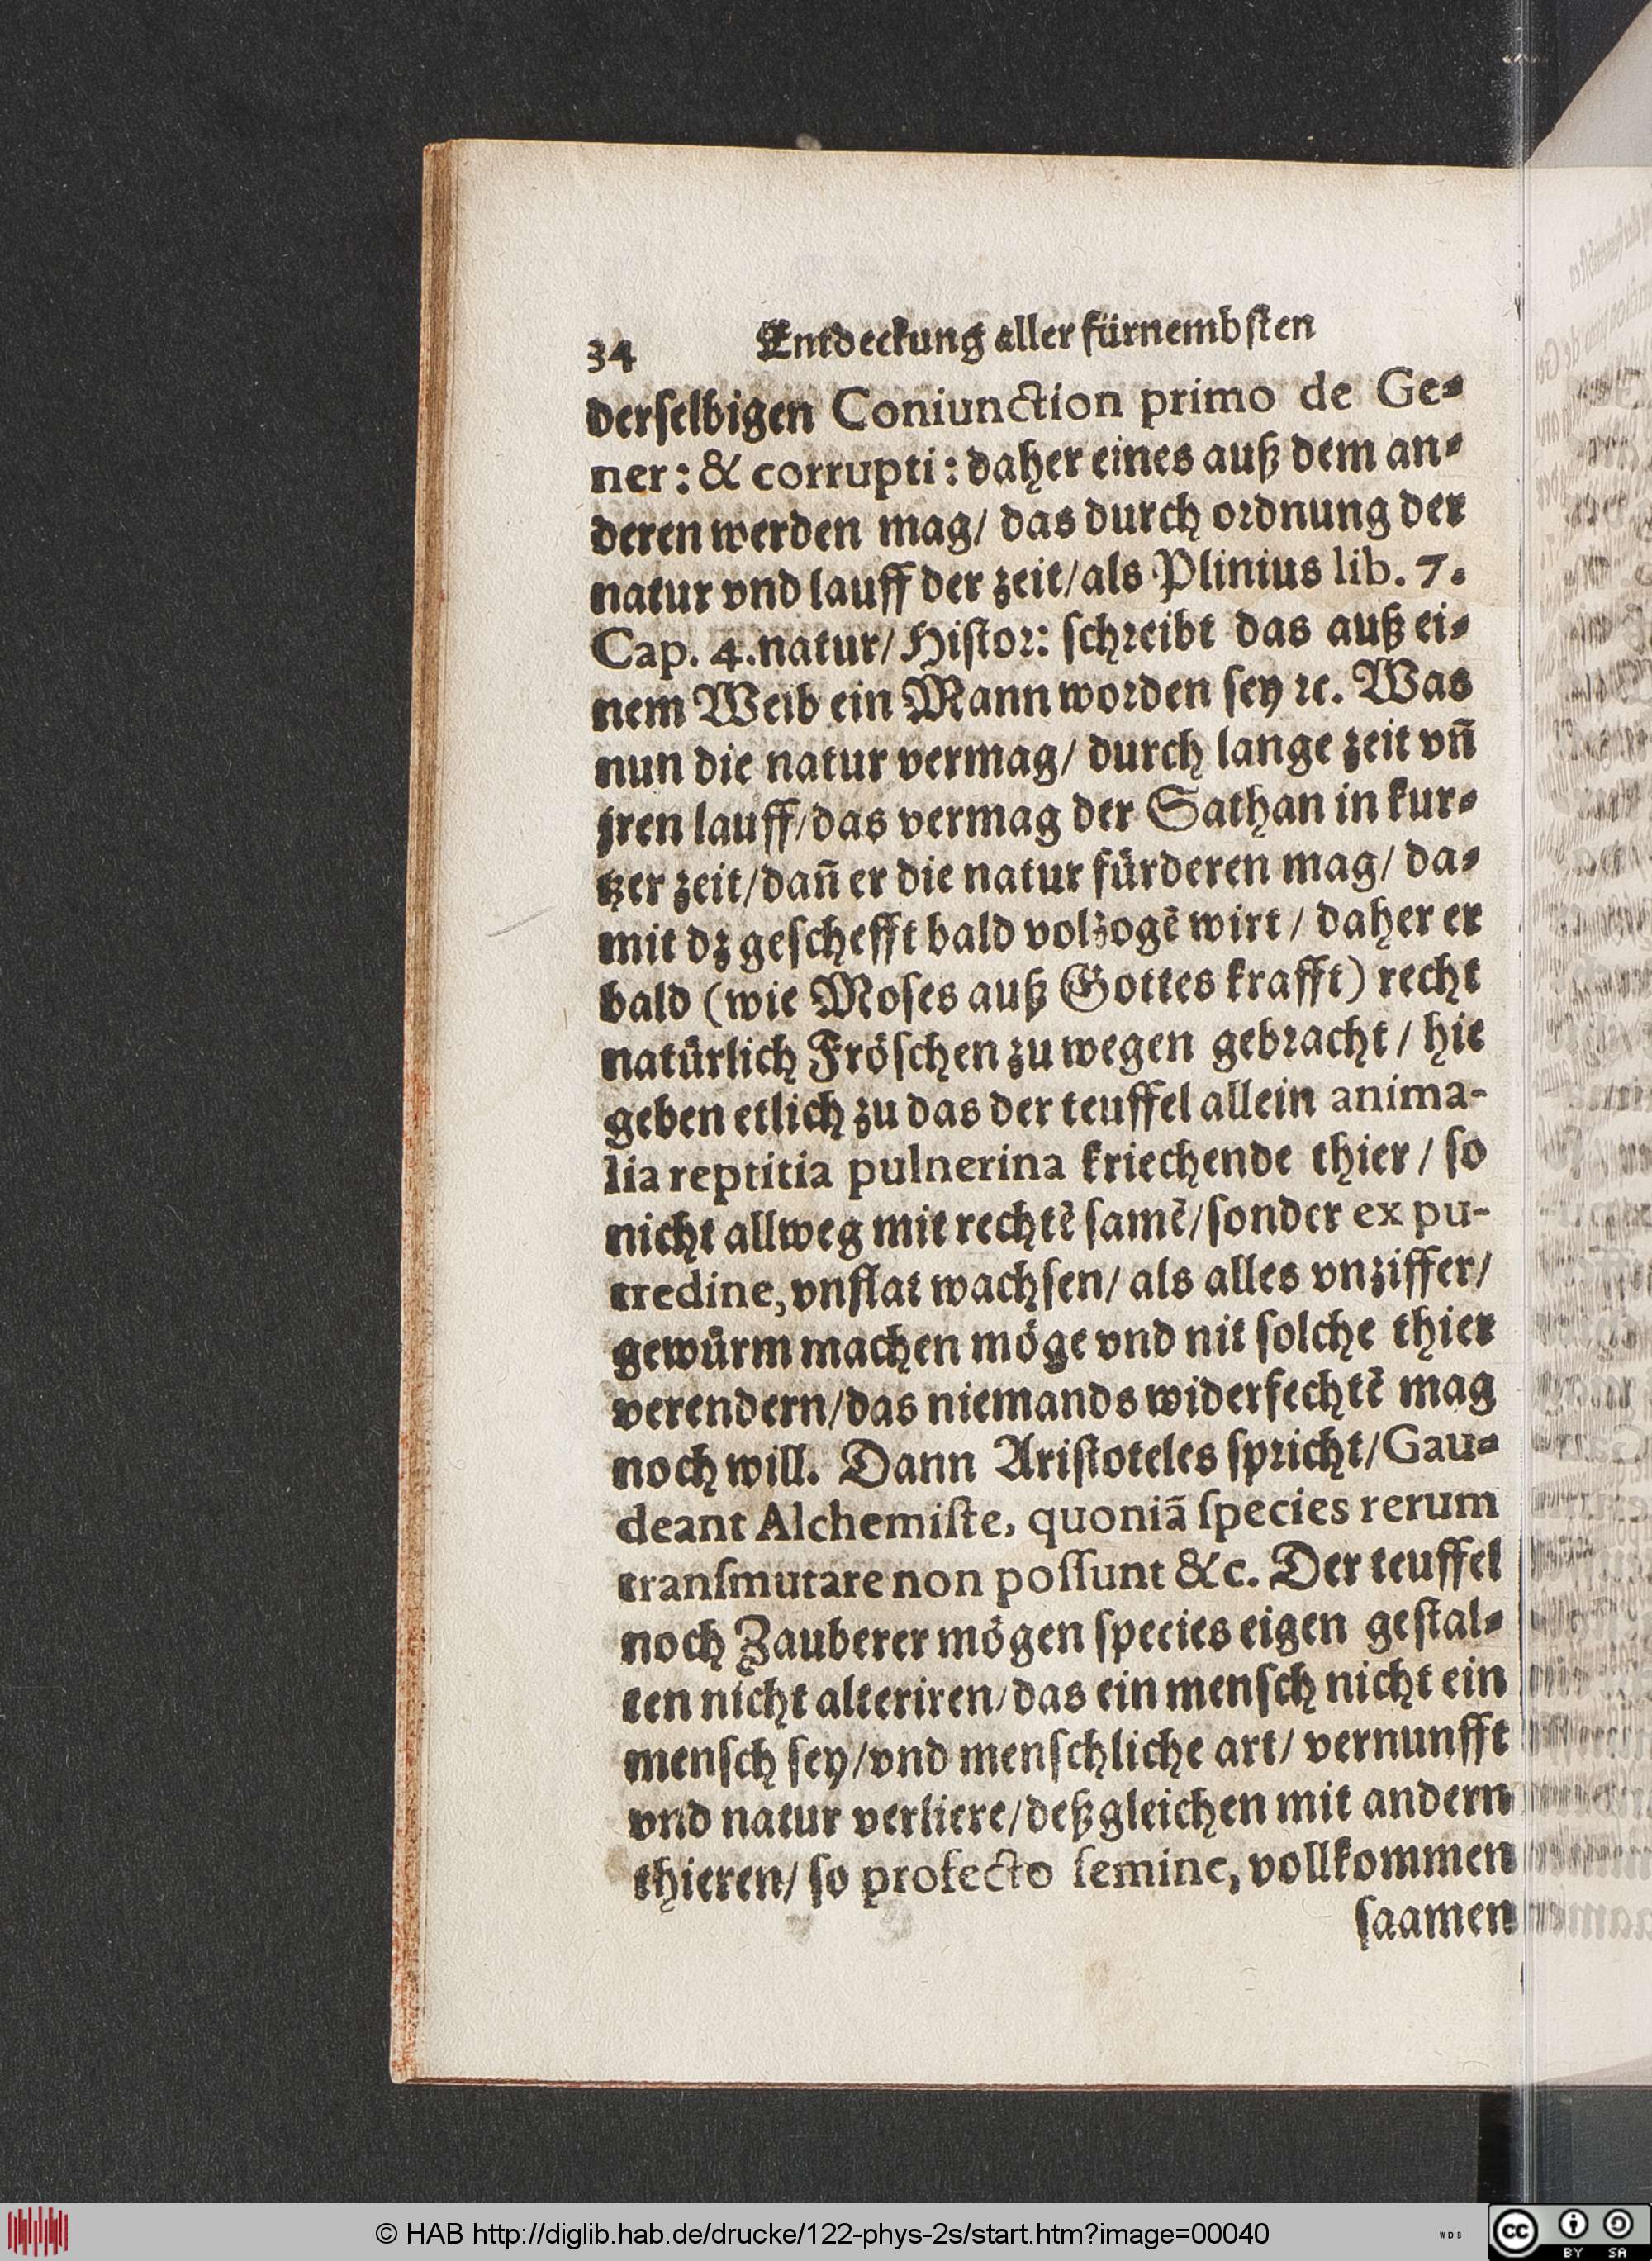 34 Entdeckung aller fürnembsten
derselbigen Coniunction primo de Ge⸗
ner: & corrupti: daher eines auß dem an⸗
deren werden mag/ das durch ordnung der
natur vnd lauff der zeit/als Plinius lib. 7.
Cap. 4. natur/ Histor: schreibt das auß ei⸗
nem Weib ein Mann worden sey ꝛc. Was
nun die natur vermag/ durch lange zeit vñ
jren lauff/das vermag der Sathan in kur⸗
tzer zeit/dañ er die natur fürderen mag/ da⸗
mit dz geschefft bald volzogē wirt / daher er
bald (wie Moses auß Gottes krafft) recht
natürlich Fröschen zu wegen gebracht / hie
geben etlich zu das der teuffel allein anima-
lia reptitia pulnerina kriechende thier / so
nicht allweg mit rechtē samē/sonder ex pu-
tredine, vnflat wachsen/ als alles vnziffer/
gewürm machen möge vnd nit solche thier
verendern/das niemands widerfechtē mag
noch will. Dann Aristoteles spricht/Gau⸗
deant Alchemiste, quoniã species rerum
transmutare non possunt &c. Der teuffel
noch Zauberer mögen species eigen gestal⸗
ten nicht alteriren/das ein mensch nicht ein
mensch sey/vnd menschliche art/ vernunfft
vnd natur verliere/deßgleichen mit andern
thieren/ so profecto semine, vollkommen
saamen
© HAB http://diglib.hab.de/drucke/122-phys-2s/start.htm?image=00040
WDB
cc
BY SA